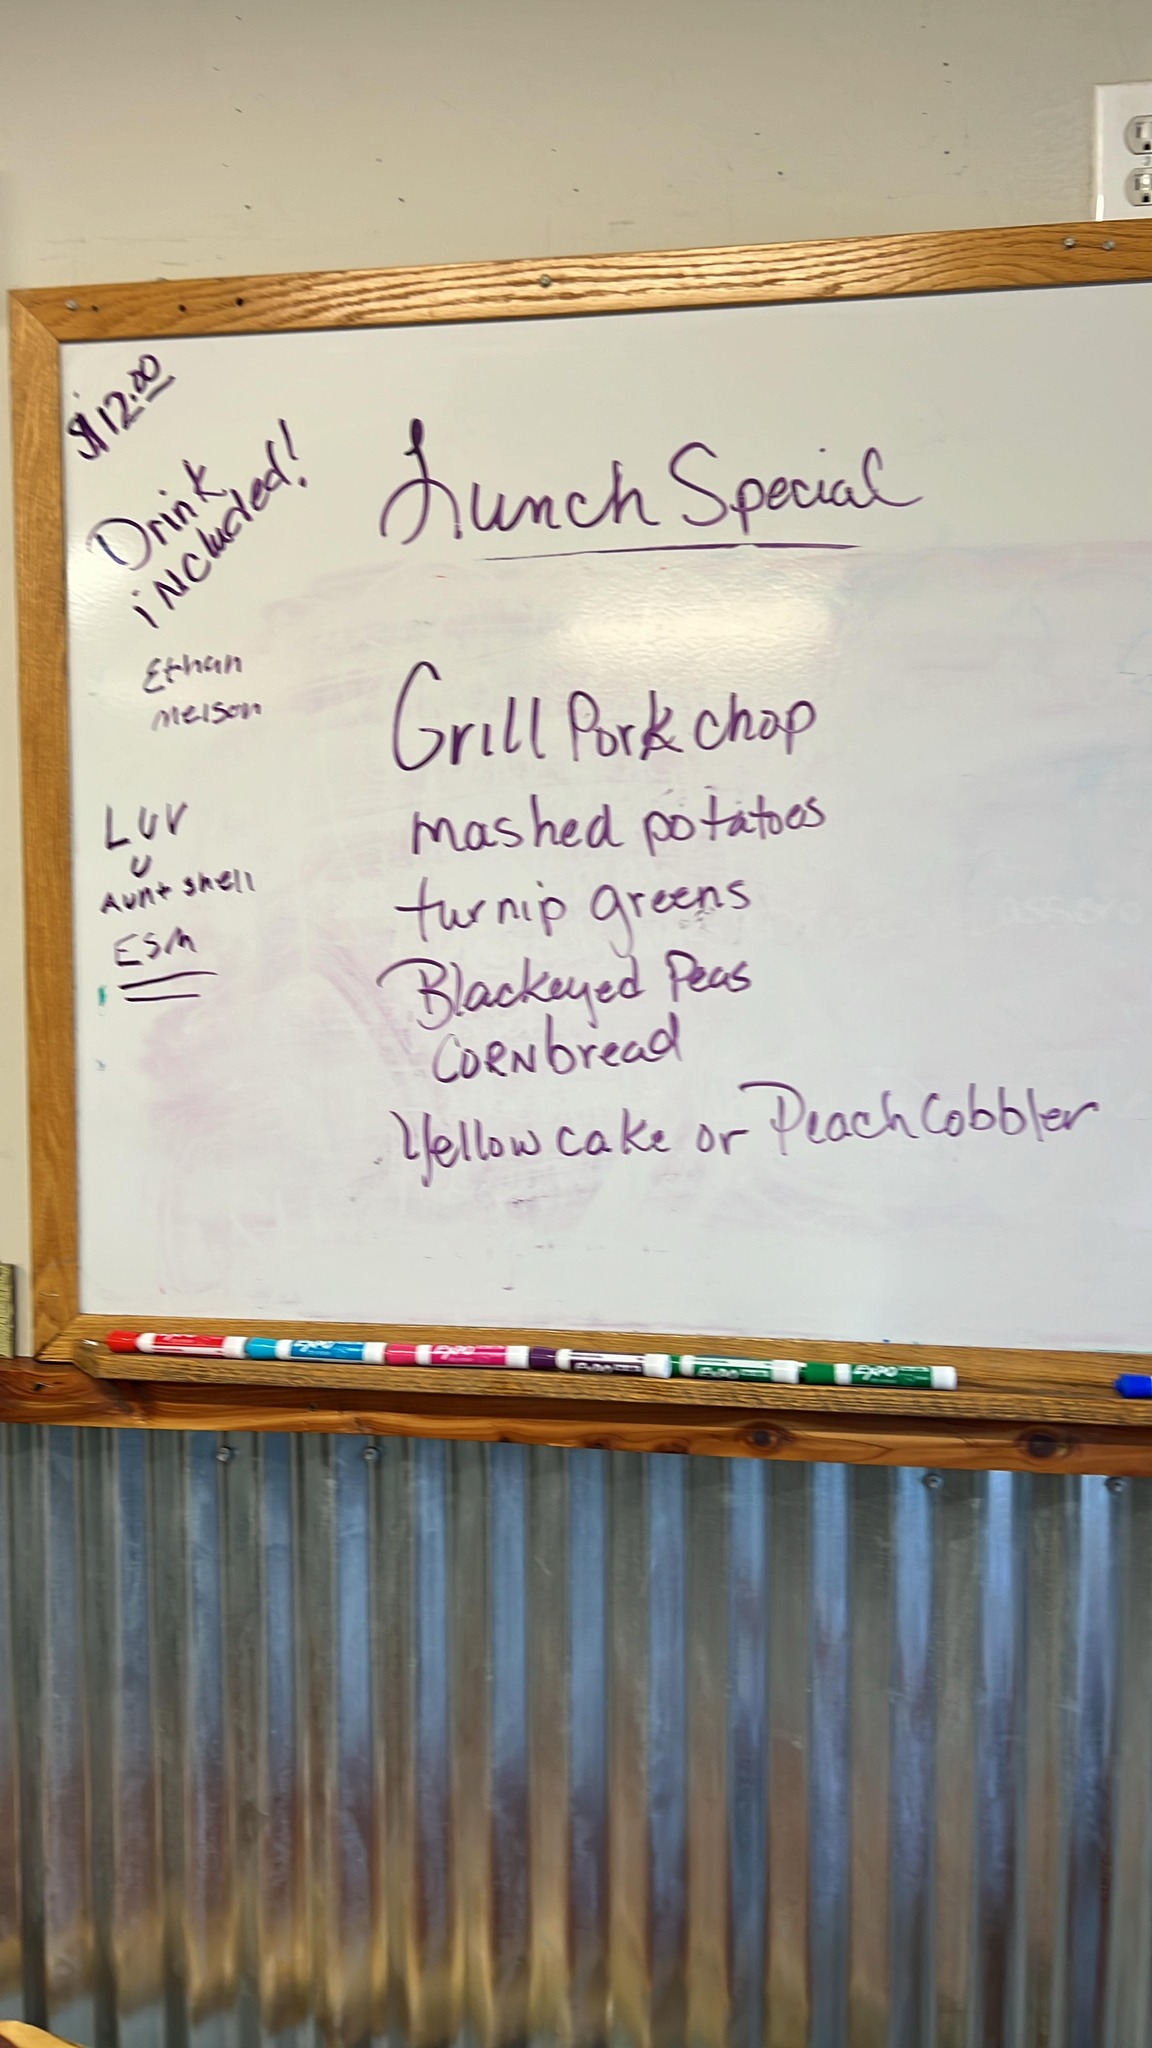 $12.00
Drink
included!
Lunch Special
Ethan
melson
Grill Pork chop
mashed potatoes
turnip greens
Blackeyed Peas
CORNbread
Yellow cake or Peach Cobbler
LUV
U
Aunt shell
ESM
EXPO
EXPO
EXPO
EXPO
EXPO
EXPO